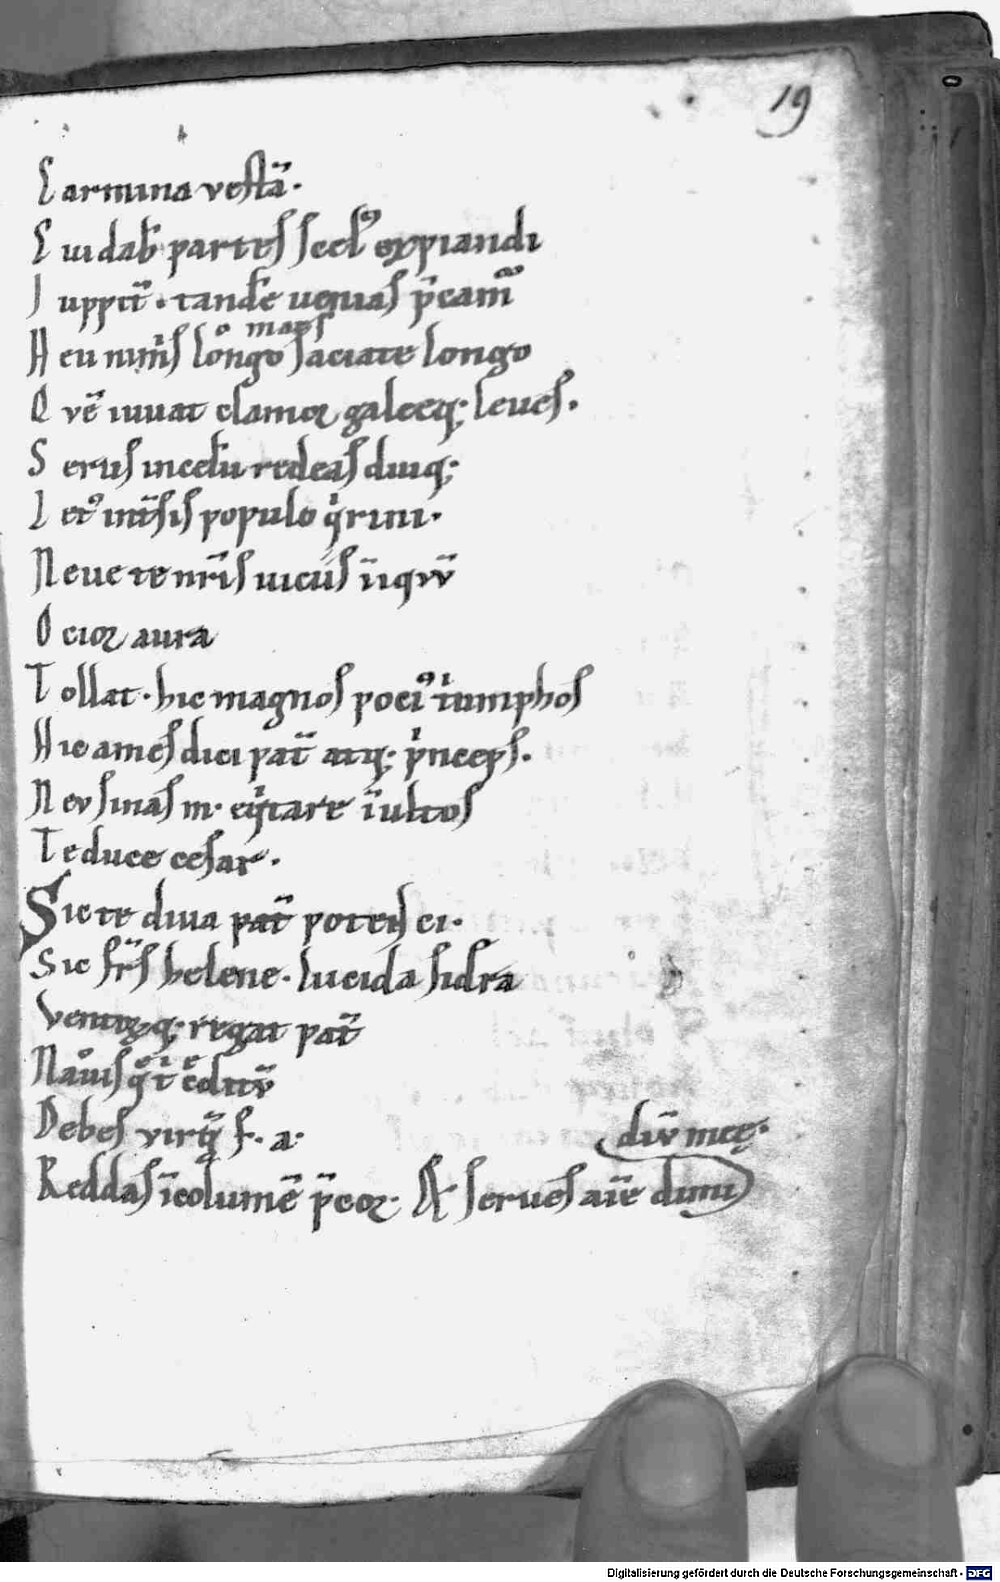 19
Carmina vestã.
Cui dab̃ partes scel᷒ expiandi
Iuppit̃. tand̃e venias p̃camͫ
Heu nimͥs lͦongo saciate longo
maͬs
Quẽ iuvat clamor galeeq; leues.
Serus in cel̃u redeas diuq;
Let᷒ int̃sis populo qͥrini.
Neue te nr̃is uicius ĩiqũ
Ocior aura
Tollat. hic magnos poci᷒ tͥumphos
Hic ames dici pat̃ atq; pͥnceps.
Neu sinas m. eqͥtare ĩultos
Te duce cesar.
Sic te diua pat̃ potens ci.
Sic fr̃s helene. lucida sidra
Ventorq; regat pat̃
Naͦuis qͤ tͥ cͤditũ
Debes virg̃ f. a.
diũ meę.
Reddas ĩcolumẽ p̃cor. Et serues aĩe dimi
Digitalisierung gefördert durch die Deutsche Forschungsgemeinschaft - DFG